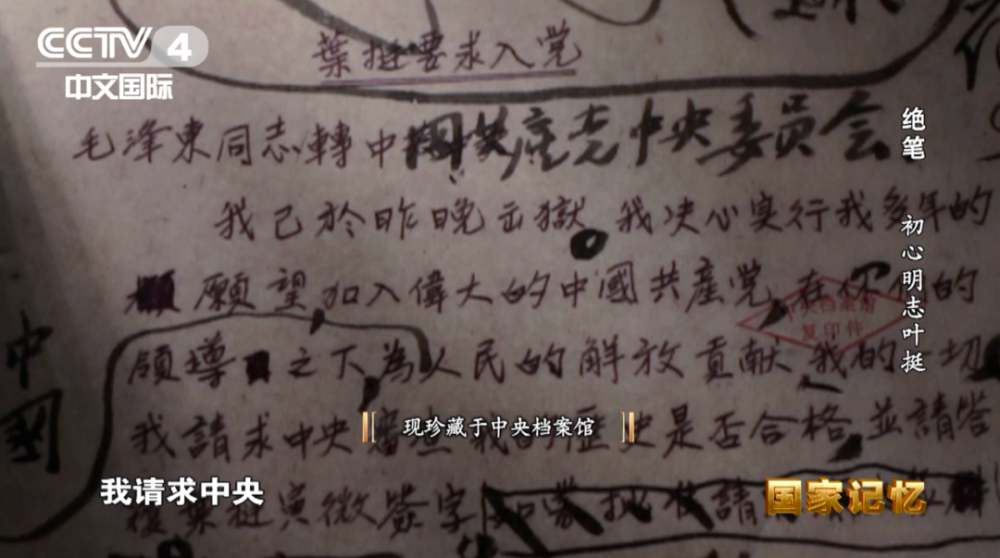 CCTV 4
中文国际
葉挺要求入党
毛澤東同志轉中國共產党中央委员会
我已於昨晚出獄 我决心实行我多年的
願望加入偉大的中國共產党,在你们的
領導之下,為人民的解放貢献我的一切
我請求中央審查我的历史是否合格,並請答
葉挺寅微签字
中國
中央档案馆
复印件
绝笔 初心明志叶挺
现珍藏于中央档案馆
我请求中央
国家记忆